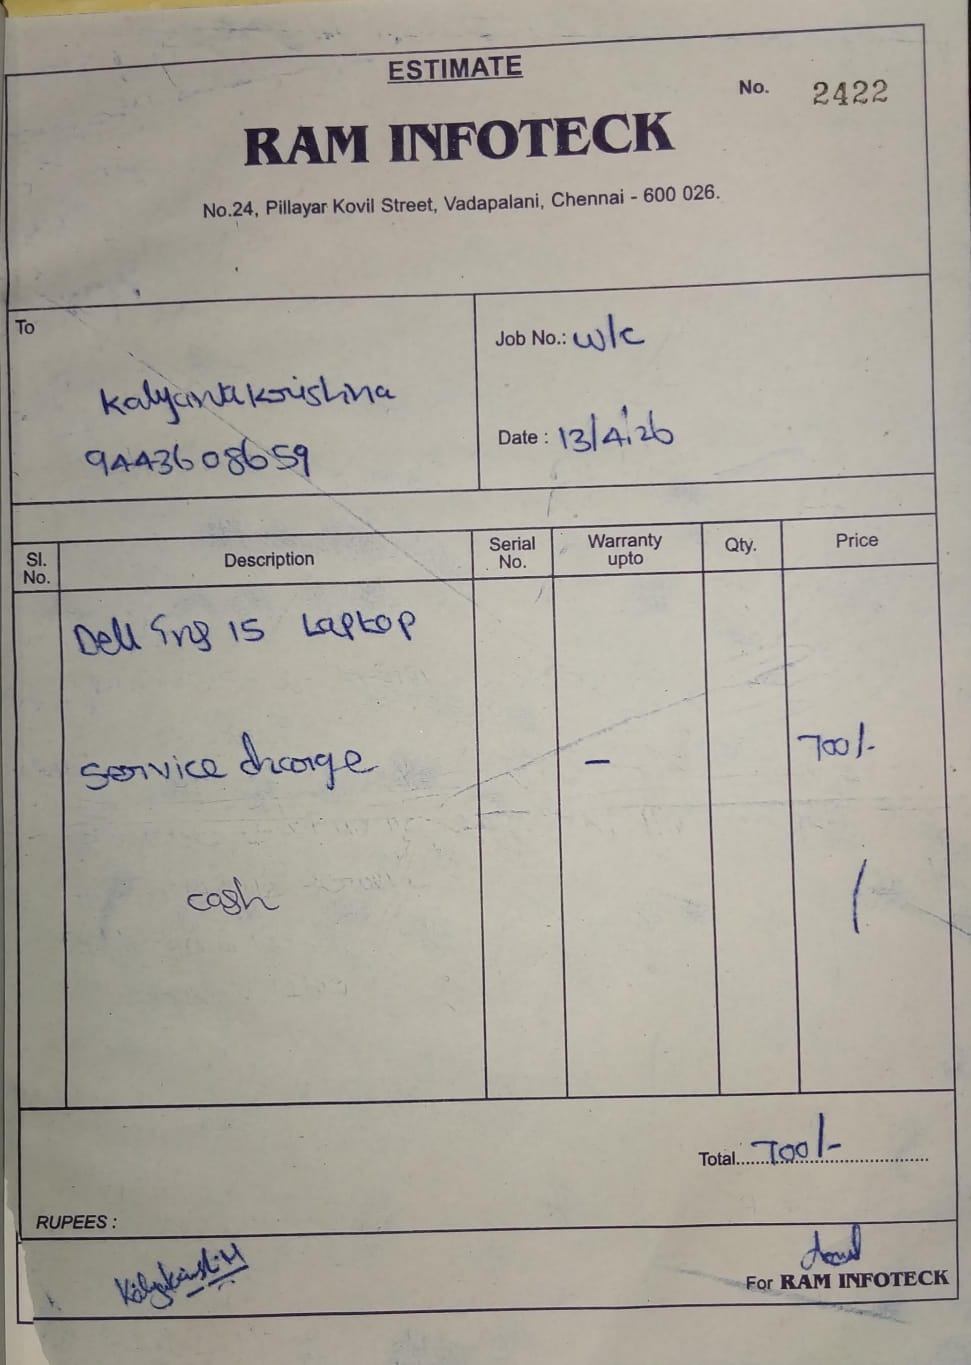 ESTIMATE
No. 2422
RAM INFOTECK
No.24, Pillayar Kovil Street, Vadapalani, Chennai - 600 026.
To
Kalyanakrishna
9443608659
Job No.: w/c
Date : 13/4/26
Sl. No. Description Serial No. Warranty upto Qty. Price
Dell Ins 15 Laptop
Service charge – 700/-
cash /
Total 700/-
RUPEES :
For RAM INFOTECK